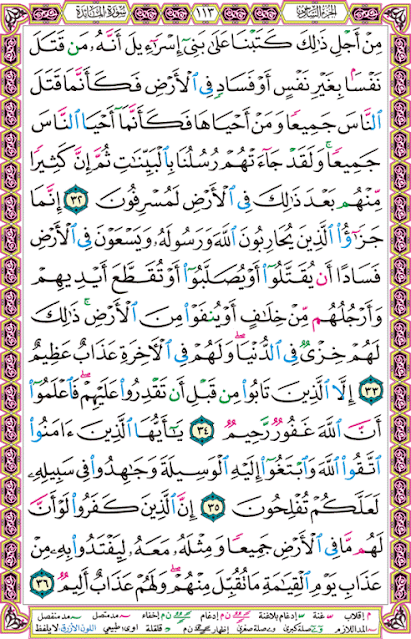 الجزء السادس ١١٣ سورة المائدة
مِنْ أَجْلِ ذَٰلِكَ كَتَبْنَا عَلَىٰ بَنِىٓ إِسْرَٰٓءِيلَ أَنَّهُۥ مَن قَتَلَ
نَفْسًۢا بِغَيْرِ نَفْسٍ أَوْ فَسَادٍ فِى ٱلْأَرْضِ فَكَأَنَّمَا قَتَلَ
ٱلنَّاسَ جَمِيعًا وَمَنْ أَحْيَاهَا فَكَأَنَّمَآ أَحْيَا ٱلنَّاسَ
جَمِيعًا ۚ وَلَقَدْ جَآءَتْهُمْ رُسُلُنَا بِٱلْبَيِّنَٰتِ ثُمَّ إِنَّ كَثِيرًا
مِّنْهُم بَعْدَ ذَٰلِكَ فِى ٱلْأَرْضِ لَمُسْرِفُونَ ٣٢ إِنَّمَا
جَزَٰٓؤُا۟ ٱلَّذِينَ يُحَارِبُونَ ٱللَّهَ وَرَسُولَهُۥ وَيَسْعَوْنَ فِى ٱلْأَرْضِ
فَسَادًا أَن يُقَتَّلُوٓا۟ أَوْ يُصَلَّبُوٓا۟ أَوْ تُقَطَّعَ أَيْدِيهِمْ
وَأَرْجُلُهُم مِّنْ خِلَٰفٍ أَوْ يُنفَوْا۟ مِنَ ٱلْأَرْضِ ۚ ذَٰلِكَ
لَهُمْ خِزْىٌ فِى ٱلدُّنْيَا ۖ وَلَهُمْ فِى ٱلْءَاخِرَةِ عَذَابٌ عَظِيمٌ
٣٣ إِلَّا ٱلَّذِينَ تَابُوا۟ مِن قَبْلِ أَن تَقْدِرُوا۟ عَلَيْهِمْ ۖ فَٱعْلَمُوٓا۟
أَنَّ ٱللَّهَ غَفُورٌ رَّحِيمٌ ٣٤ يَٰٓأَيُّهَا ٱلَّذِينَ ءَامَنُوا۟
ٱتَّقُوا۟ ٱللَّهَ وَٱبْتَغُوٓا۟ إِلَيْهِ ٱلْوَسِيلَةَ وَجَٰهِدُوا۟ فِى سَبِيلِهِۦ
لَعَلَّكُمْ تُفْلِحُونَ ٣٥ إِنَّ ٱلَّذِينَ كَفَرُوا۟ لَوْ أَنَّ
لَهُم مَّا فِى ٱلْأَرْضِ جَمِيعًا وَمِثْلَهُۥ مَعَهُۥ لِيَفْتَدُوا۟ بِهِۦ مِنْ
عَذَابِ يَوْمِ ٱلْقِيَٰمَةِ مَا تُقُبِّلَ مِنْهُمْ ۖ وَلَهُمْ عَذَابٌ أَلِيمٌ ٣٦